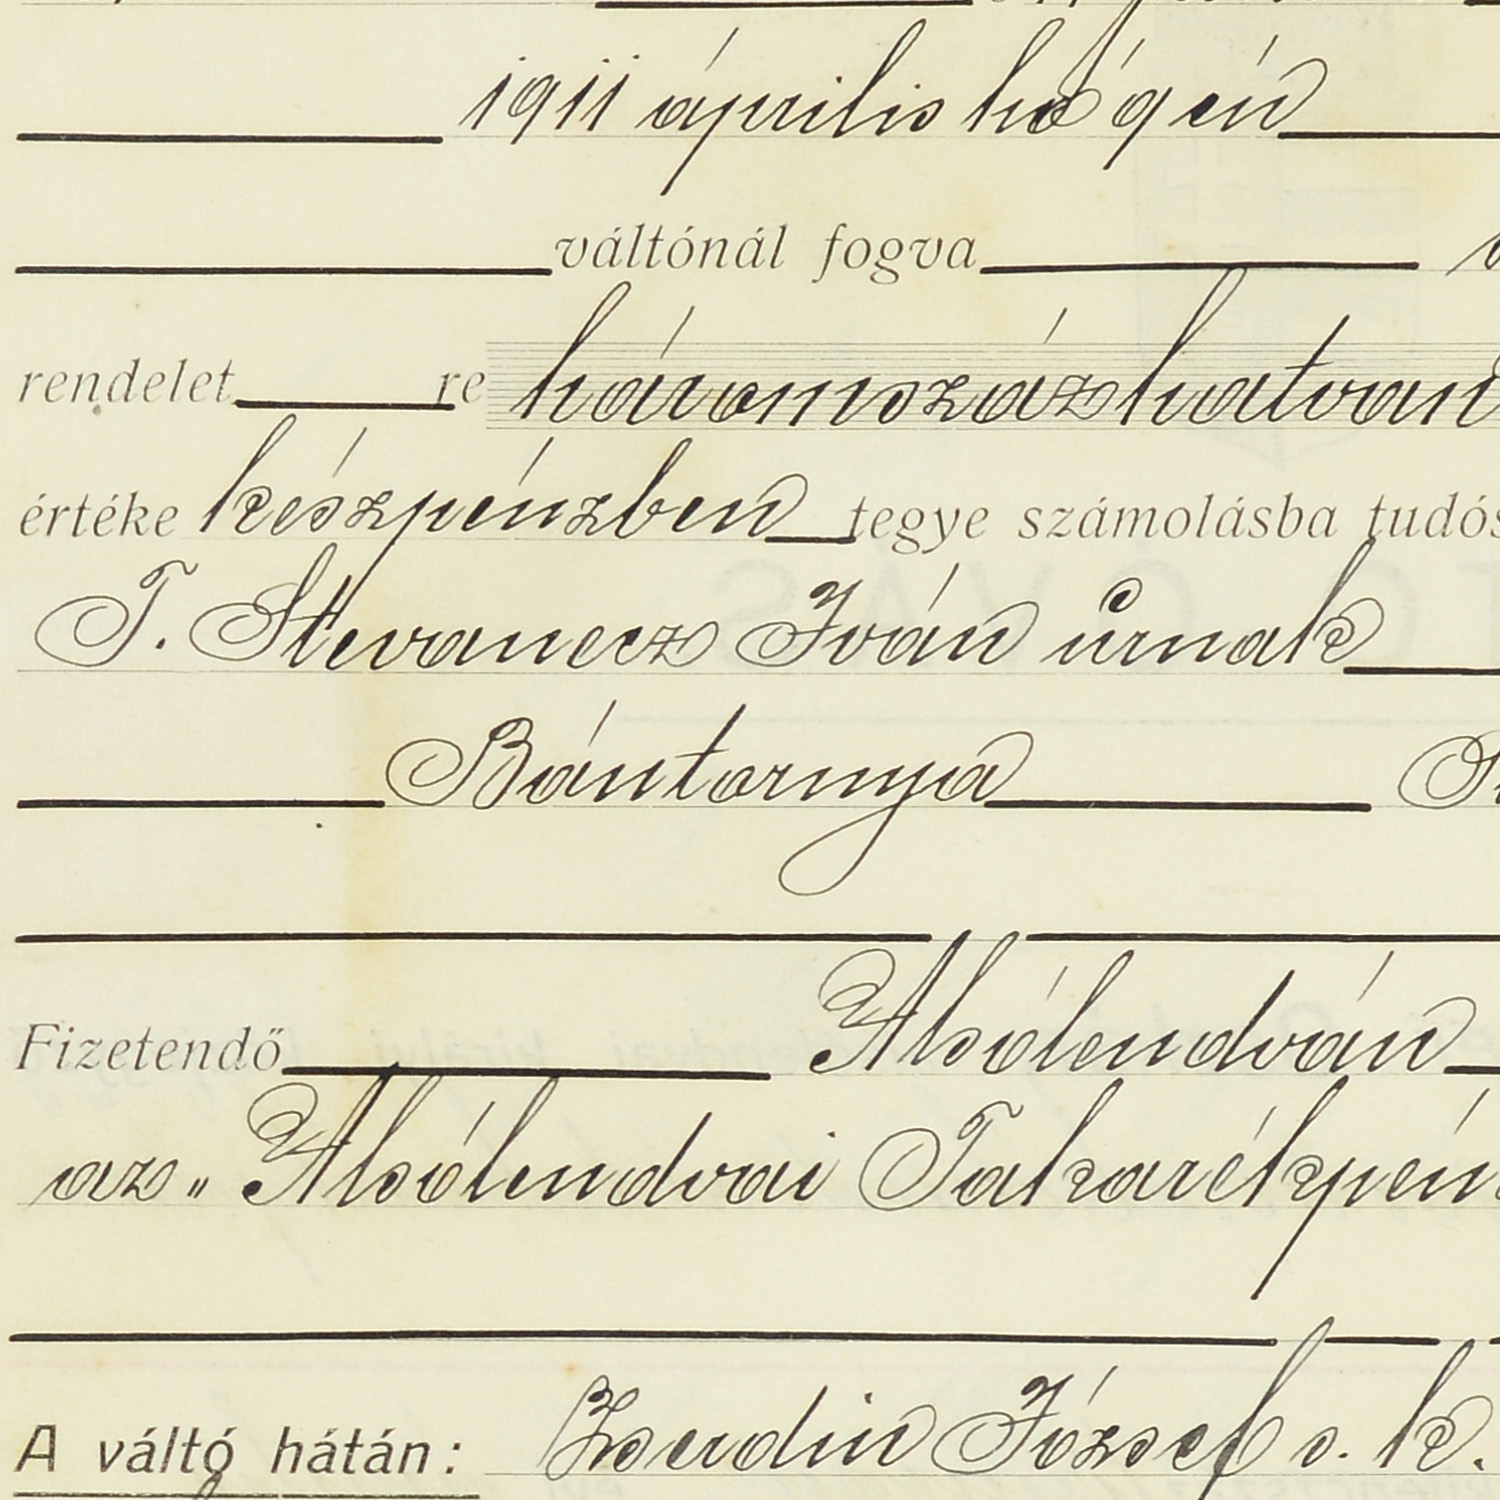 1911 április hó 9 én
váltónál fogva
rendelet re háromszázhatvan
értéke készpénzben tegye számolásba tudós
T. Stevanecz Iván úrnak
Bántornya
Fizetendő Alsólendván
az „Alsólendvai Takarékpén
A váltó hátán: Zserdin József s. k.